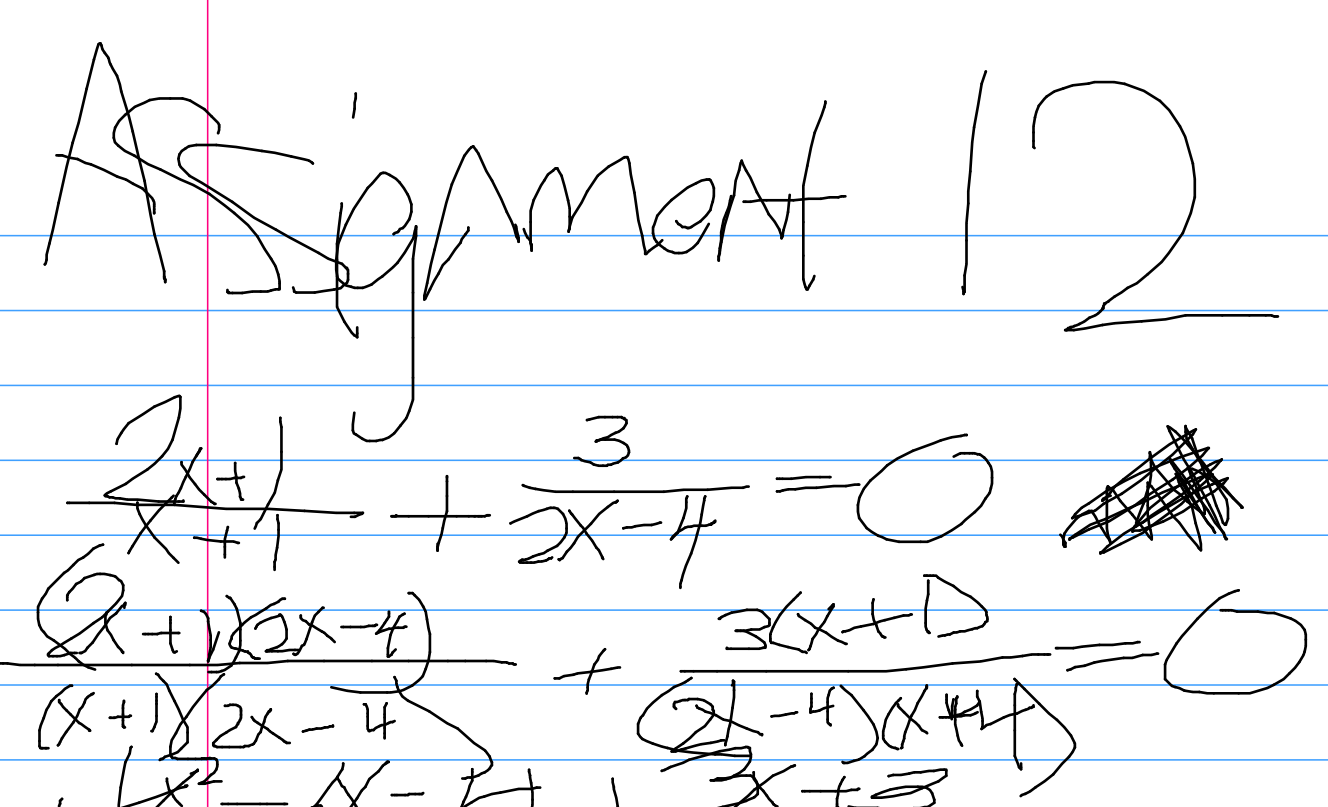 Assignment 12
(2x+1)/(x+1) + 3/(2x-4) = 0
(2x+1)(2x-4)/(x+1)(2x-4) + 3(x+1)/(2x-4)(x+1) = 0
4x² - 6x - 4 + 3x + 3